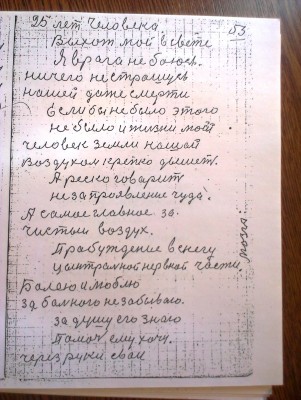 25 лет Человека 53
Выхот мой в свете
Я врага не боюсь.
ничего нестрашусь
нашей даже смерти
Если бы не было этого
не было и жизни моей
человек земли нашей
воздухом крепко дышет.
А реско говарит
незапроявление чуда.
А самое главное за
чистый воздух.
Прабуждение в снегу
центральной нервной части
мозга.
Балею и люблю
за балного незабываю.
за душу его знаю
Памоч ему хочу.
через руки сваи